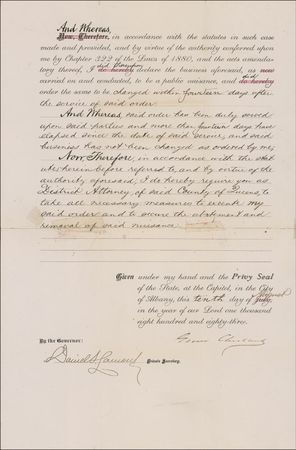 And Whereas,
Now, Therefore, in accordance with the statutes in such case
made and provided, and by virtue of the authority conferred upon
me by Chapter 322 of the Laws of 1880, and the acts amenda-
tory thereof, I did thereupon do hereby declare the business aforesaid, as now
carried on and conducted, to be a public nuisance, and did do hereby
order the same to be changed within fourteen days after
the service of said order.
And Whereas, said order has been duly served
upon said parties and more than fourteen days have
elapsed since the date of said service, and said
business has not been changed as ordered by me;
Now, Therefore, in accordance with the stat-
utes herein before referred to, and by virtue of the
authority aforesaid, I do hereby require you as
District Attorney of said County of Queens to
take all necessary measures to execute my
said order and to secure the abatement and
removal of said nuisance.
Given under my hand and the Privy Seal
of the State, at the Capitol, in the City
of Albany, this tenth day of July, August
in the year of our Lord one thousand
eight hundred and eighty-three.
Grover Cleveland
By the Governor:
Daniel S. Lamont
Private Secretary.